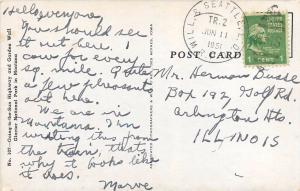 Hello, everyone,
You should see
it out here. 1
cow for every
sq. mile. Quite
a few pheasants
out here.
We are in
Montana. I'm
writing this from
the train, that's
why it looks like
it does.
Marve
No. 107—Going-to-the-Sun Highway and Garden Wall
Glacier National Park in Montana
SEATTLE
TR. 2
JUN 11
1951
1 CENT
POST CARD
Mr. Herman Busse
Box 192 Golf Rd.
Arlington Hts.
ILLINOIS